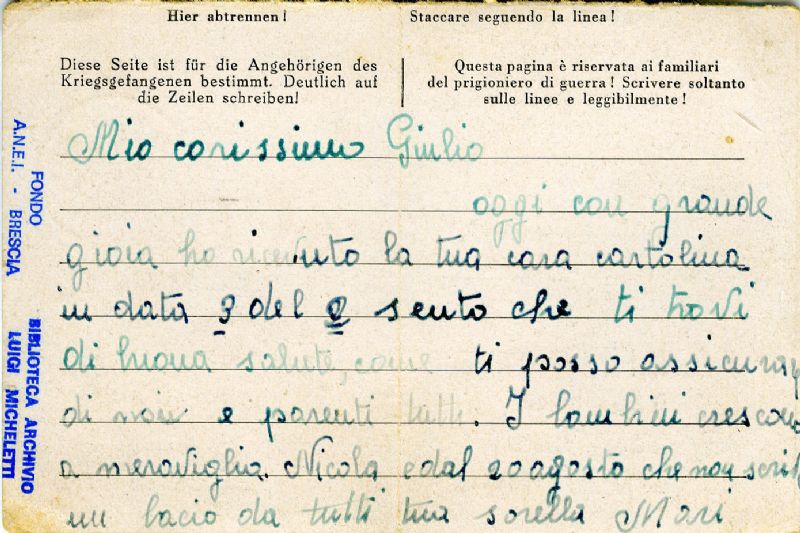 Hier abtrennen!
Staccare seguendo la linea!
Diese Seite ist für die Angehörigen des
Kriegsgefangenen bestimmt. Deutlich auf
die Zeilen schreiben!
Questa pagina è riservata ai familiari
del prigioniero di guerra! Scrivere soltanto
sulle linee e leggibilmente!
Mio carissimo Giulio
oggi con grande
gioia ho ricevuto la tua cara cartolina
in data 3 del 2 sento che ti trovi
di buona salute, come ti posso assicurar
di noi e parenti tutti. I bambini crescono
a meraviglia. Nicola e dal 20 agosto che non scri
un bacio da tutti tua sorella Mari
FONDO
A.N.E.I. - BRESCIA
BIBLIOTECA ARCHIVIO
LUIGI MICHELETTI